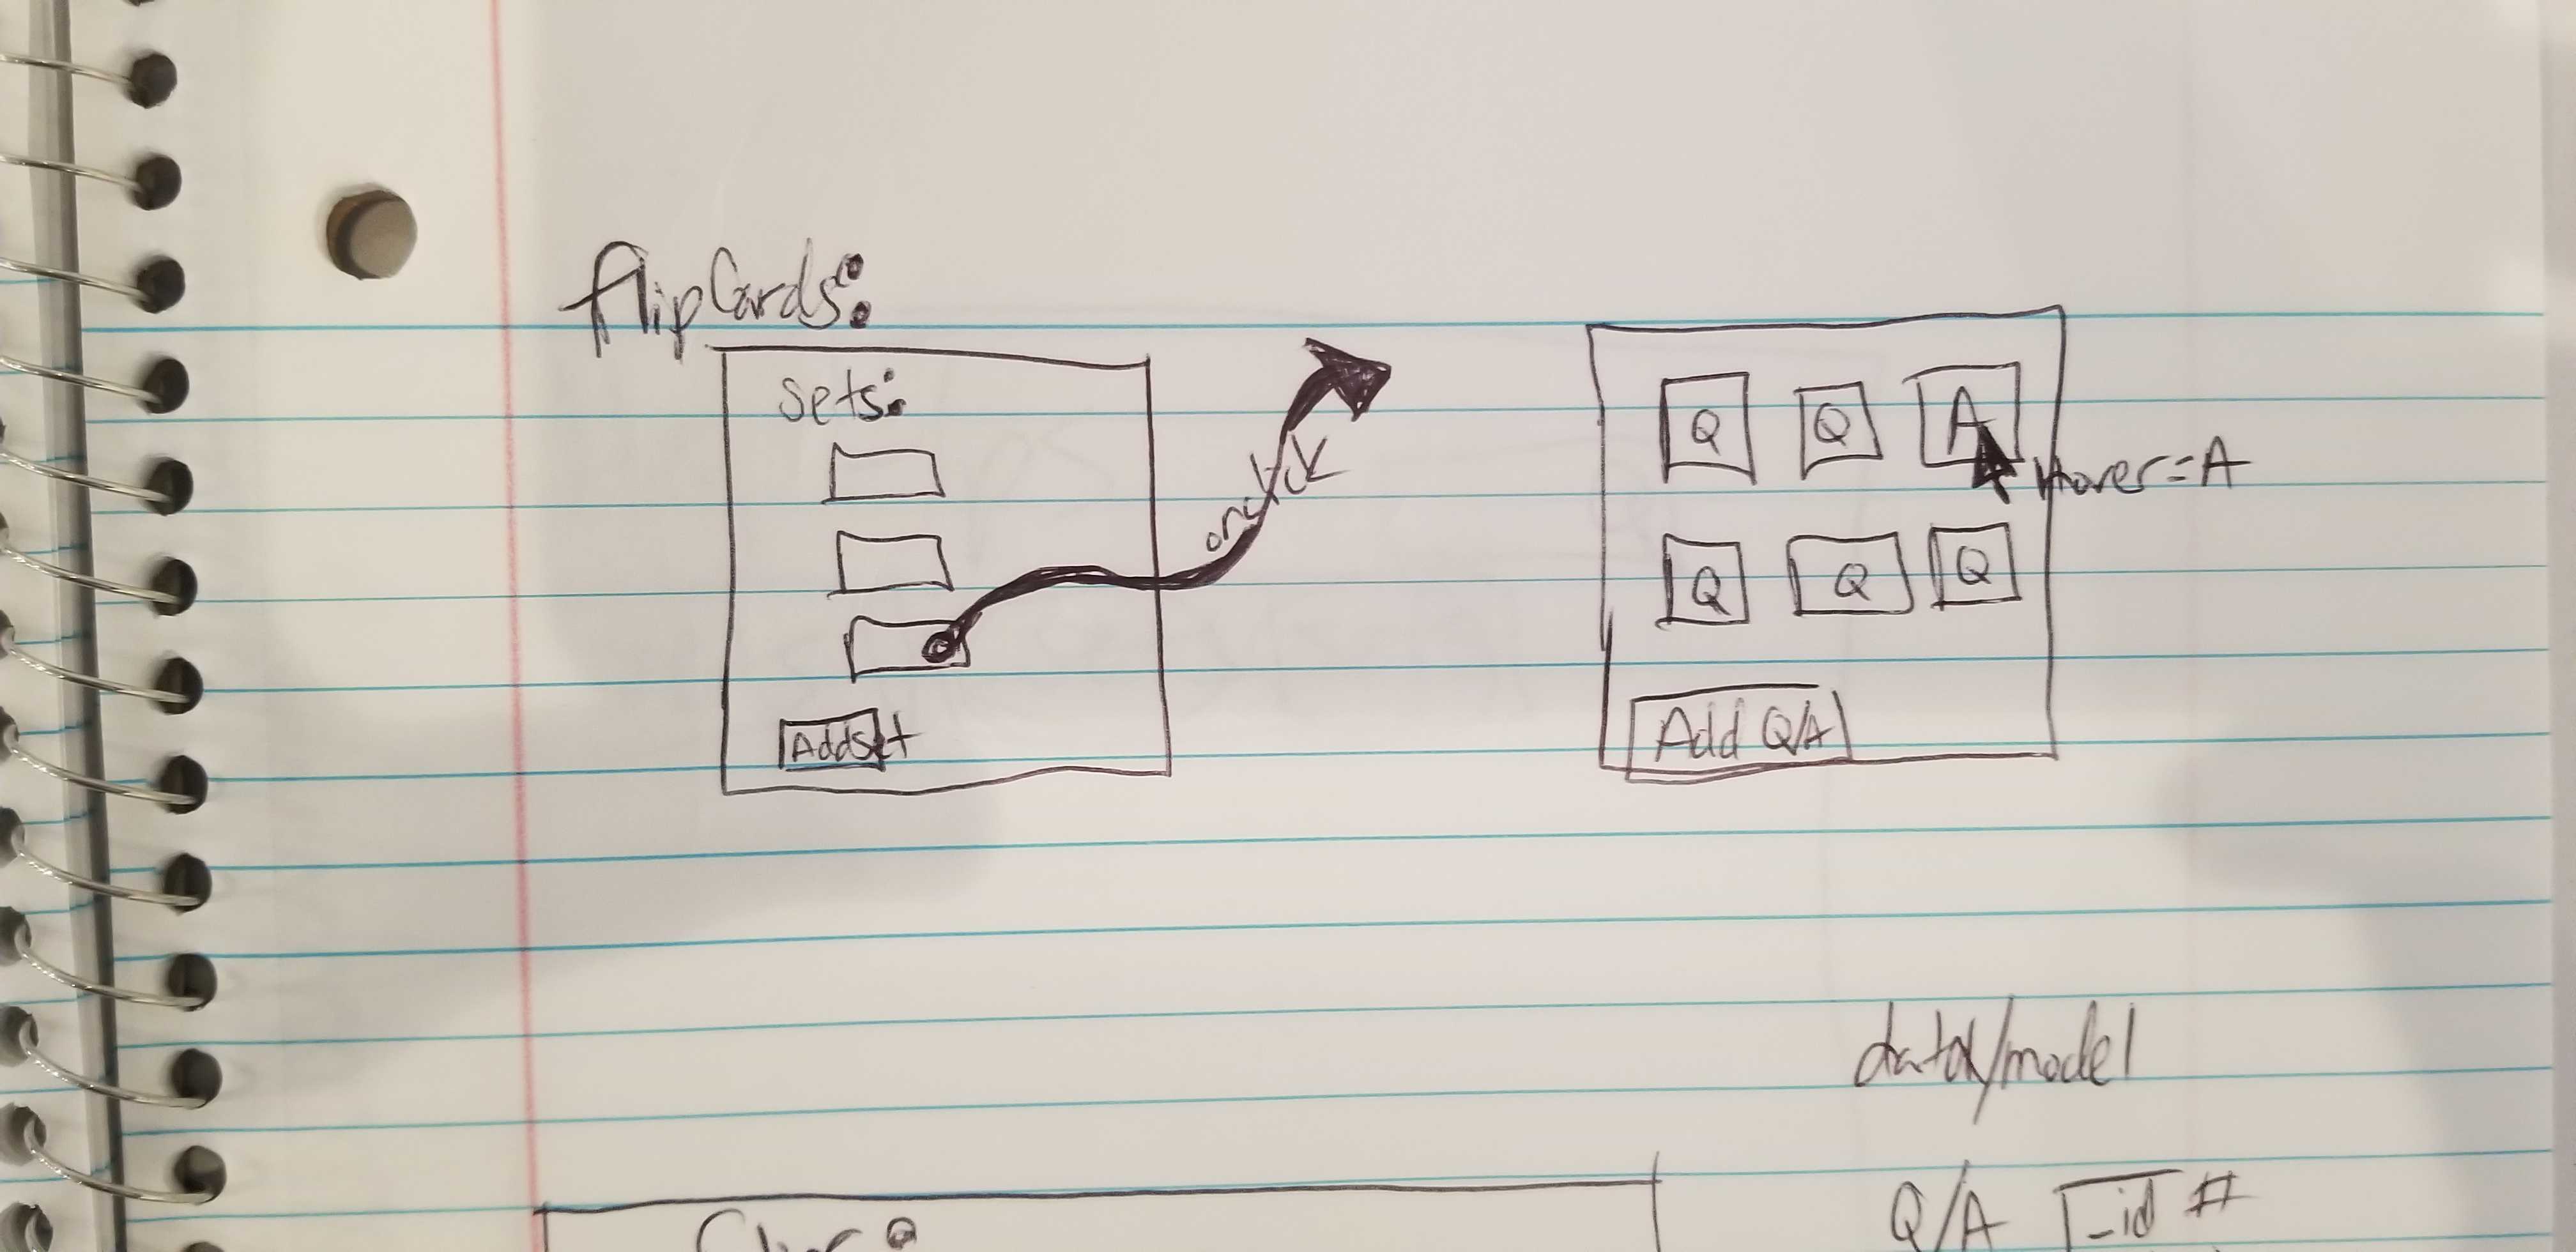 flipCards:
Sets:
Addset
onclick
Q Q A
Hover=A
Q Q Q
Add Q/A
data/model
Q/A _id #